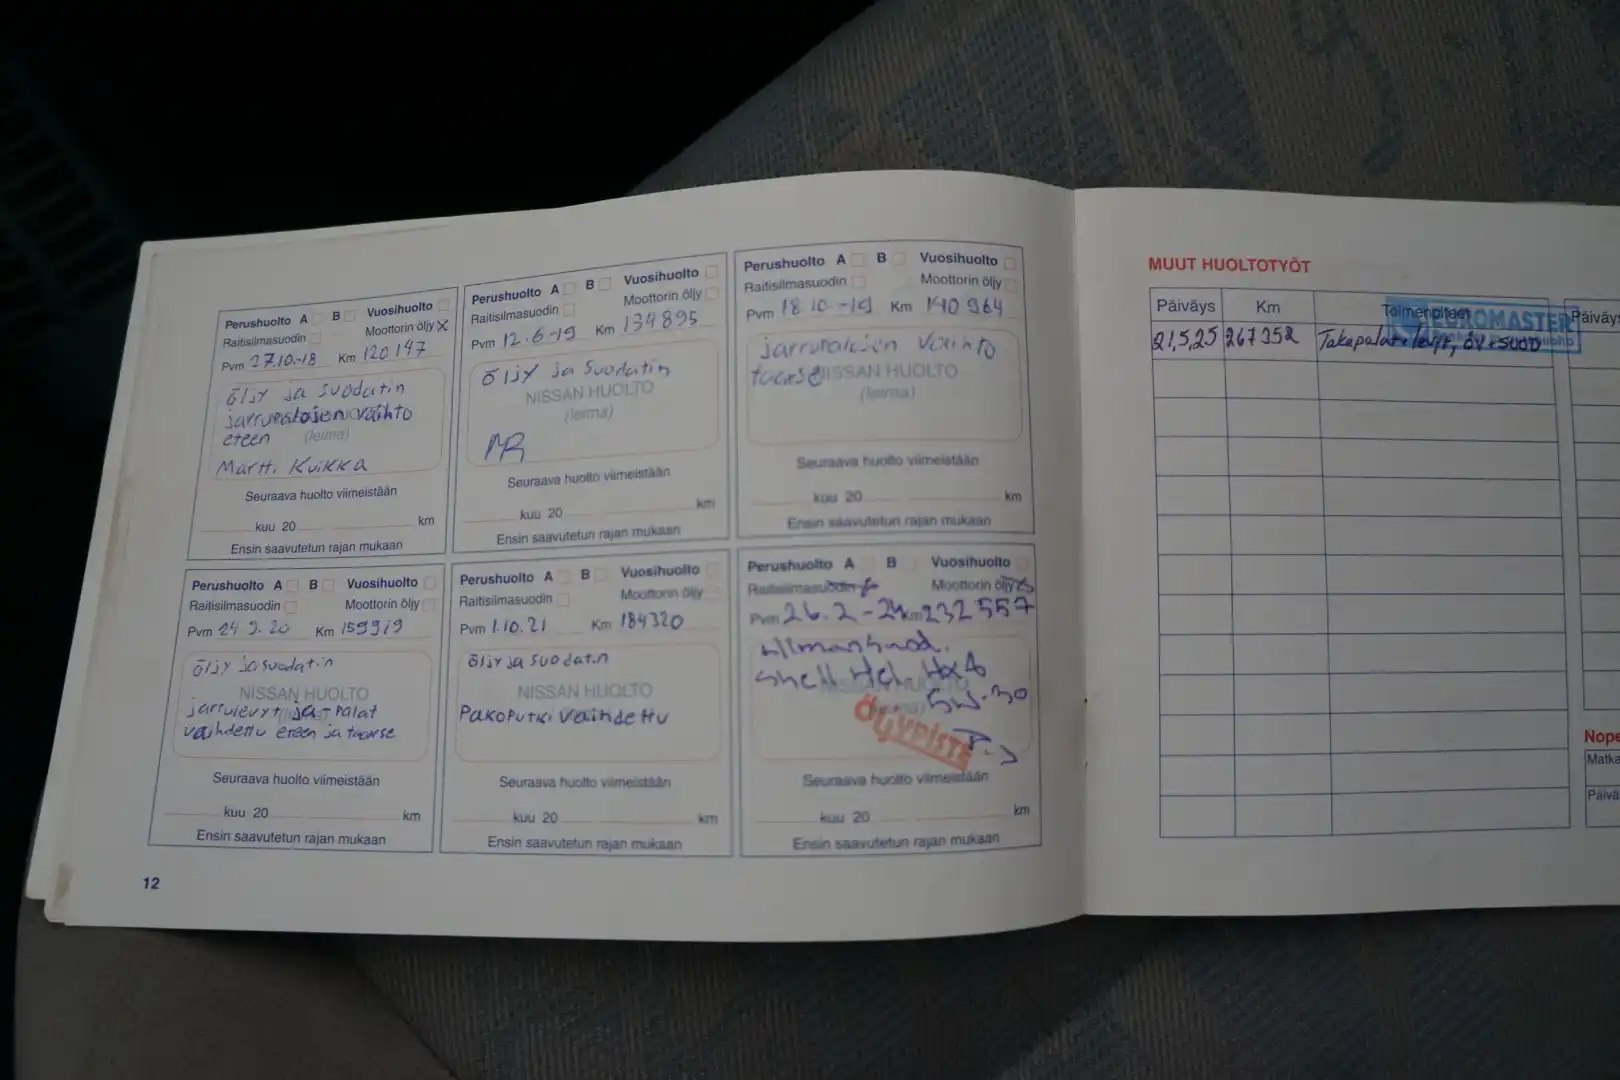 Perushuolto A B Vuosihuolto
Raitisilmasuodin Moottorin öljy X
Pvm 27.10.-18 Km 120 147
öljy ja suodatin
jarrupalojen vaihto
eteen (leima)
Martti Kuikka
Seuraava huolto viimeistään
kuu 20 km
Ensin saavutetun rajan mukaan
Perushuolto A B Vuosihuolto
Raitisilmasuodin Moottorin öljy
Pvm 12.6-19 Km 134895
öljy ja suodatin
NISSAN HUOLTO
(leima)
Seuraava huolto viimeistään
kuu 20 km
Ensin saavutetun rajan mukaan
Perushuolto A B Vuosihuolto
Raitisilmasuodin Moottorin öljy
Pvm 18 10.-19 Km 140 964
jarrupalojen vaihto
taakse NISSAN HUOLTO
(leima)
Seuraava huolto viimeistään
kuu 20 km
Ensin saavutetun rajan mukaan
Perushuolto A B Vuosihuolto
Raitisilmasuodin Moottorin öljy
Pvm 24 9. 20 Km 159919
öljy ja suodatin
NISSAN HUOLTO
jarrulevyt ja -palat
vaihdettu eteen ja taakse
Seuraava huolto viimeistään
kuu 20 km
Ensin saavutetun rajan mukaan
Perushuolto A B Vuosihuolto
Raitisilmasuodin Moottorin öljy
Pvm 1.10.21 Km 184320
öljy ja suodatin
NISSAN HUOLTO
Pakoputki vaihdettu
Seuraava huolto viimeistään
kuu 20 km
Ensin saavutetun rajan mukaan
Perushuolto A B Vuosihuolto
Raitisilmasuodin Moottorin öljy
Pvm 26.2-24 Km 232 557
ilmansuod.
Shell Hel. HX8
5W-30
ÖLJYPISTE
Seuraava huolto viimeistään
kuu 20 km
Ensin saavutetun rajan mukaan
12
MUUT HUOLTOTYÖT
Päiväys Km Toimenpiteet
EUROMASTER
21,5,25 267352 Takapalat+levyt, öv+suod
Päiväys
Nope
Matka
Päivä